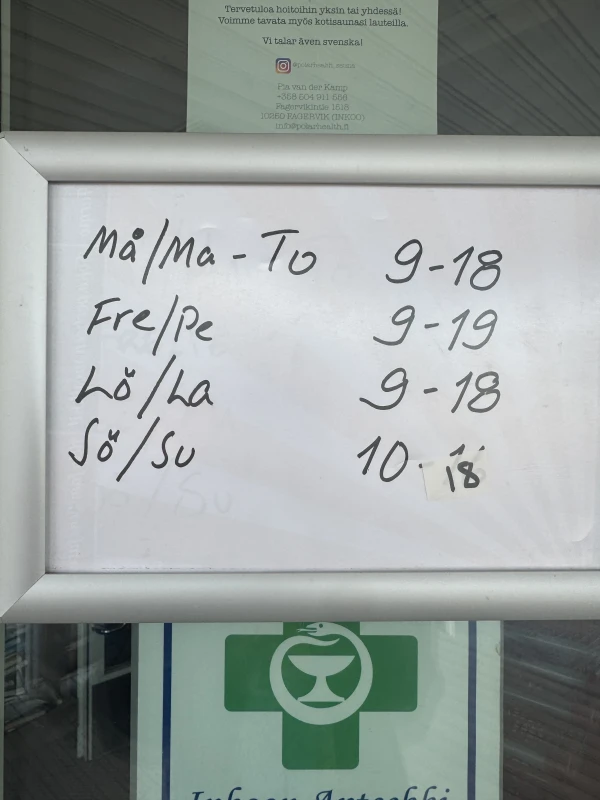 Tervetuloa hoitoihin yksin tai yhdessä!
Voimme tavata myös kotisaunasi lauteilla.
Vi talar även svenska!
Pia van der Kamp
+358 504 911 586
Fagervikintie 1518
10250 FAGERVIK (INKOO)
info@polarhealth.fi
Må/Ma - To 9-18
Fre/Pe 9-19
Lö/La 9-18
Sö/Su 10- 18
Inkoon Apteekki